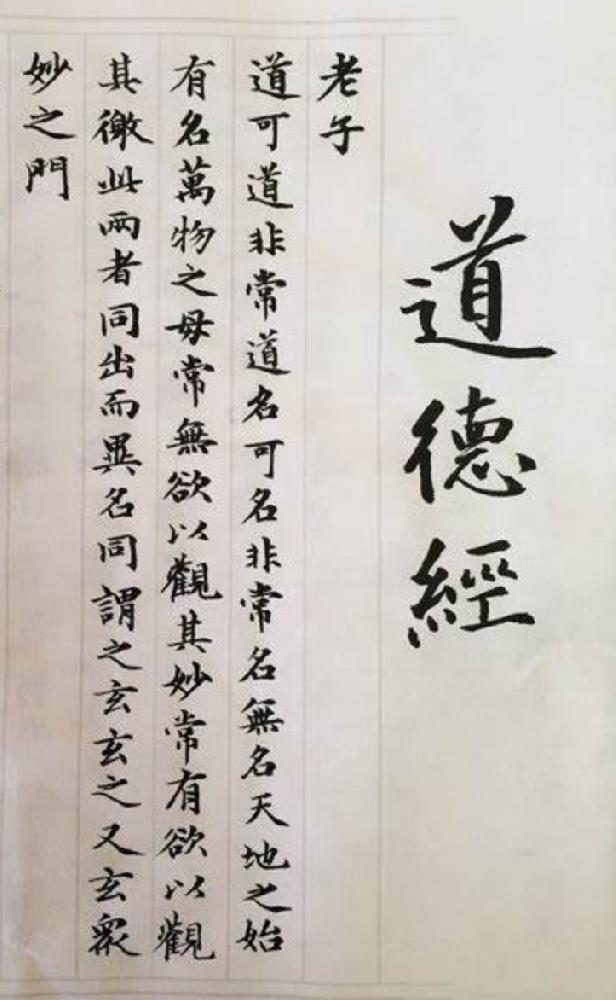 道德經
老子
道可道非常道名可名非常名無名天地之始
有名萬物之母常無欲以觀其妙常有欲以觀
其徼此兩者同出而異名同謂之玄玄之又玄眾
妙之門